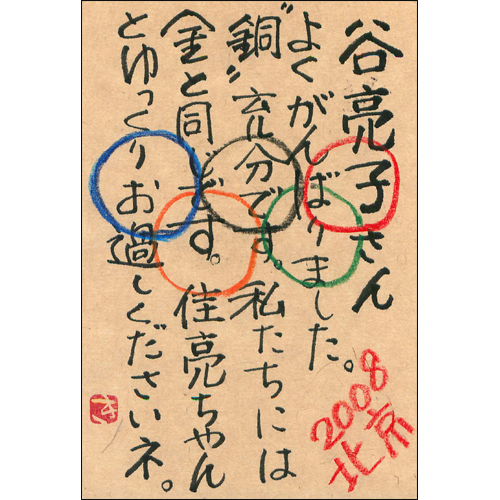 谷亮子さん
よくがんばりました。
"銅"充分です。私たちには
金と同じです。佳亮ちゃん
とゆっくりお過しくださいネ。
2008
北京